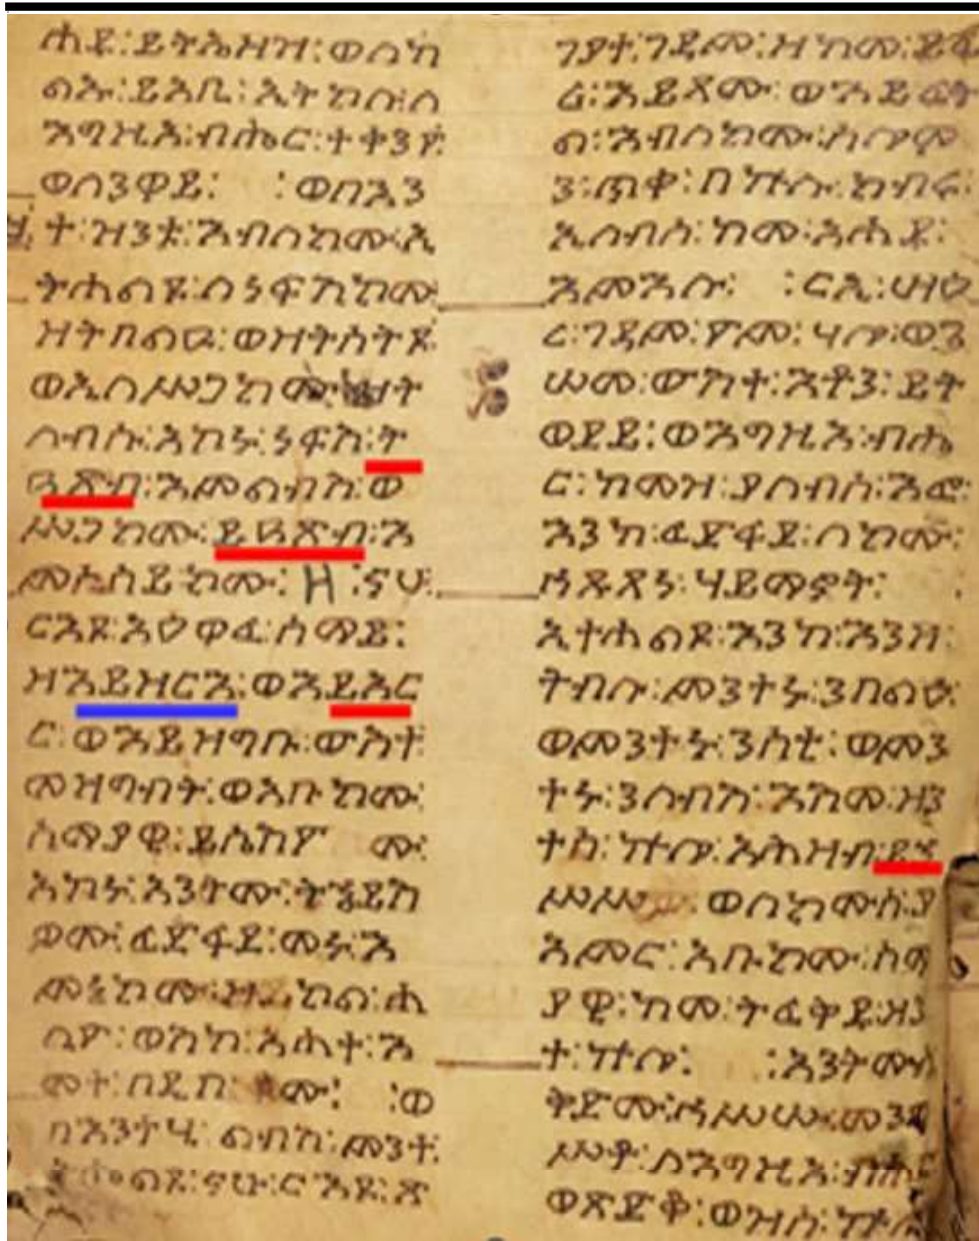 ሐዱ፡ይትኤዘዝ፡ወለካ
ልኡ፡ይእቢ፡ኢትክሉ፡ለ
እግዚአ፡ብሔር፡ተቀንዮ፡
ወለንዋይ፡ ፡ወበእን
ተ፡ዝንቱ፡እብለክሙ፡ኢ
ትሐልዩ፡ለነፍስክሙ፡
ዘትበልዑ፡ወዘትስትዩ፡
ወኢለሥጋክሙ፡ዘት
ለብሱ፡አኮኑ፡ነፍስ፡ት
ዐጽብ፡እመልብስ፡ወ
ሥጋክሙ፡ይዐጽብ፡እ
መሲሳይክሙ፡ ዘ፡ነሀ፡
ርእዩ፡አዕዋፈ፡ሰማይ፡
ዘኢይዘርእ፡ወኢይአር
ር፡ወኢይዝግቡ፡ውስተ፡
መዝገብት፡ወአቡክሙ፡
ሰማያዊ፡ይሴስዮ ሙ፡
አኮኑ፡አንትሙ፡ትኄይስ
ዎሙ፡ፈድፋደ፡መኑ፡እ
ምኔክሙ፡ክል፡ሐ
ልዮ፡ወስከ፡አሐተ፡እ
መተ፡በዲበ፡ ሙ፡ ፡ወ
በእንተሂ፡ልብስ፡ምንተ፡
ትሔልዩ፡ነዩ፡ርእዩ፡ጽ
ገያተ፡ገዳመ፡ዘከመ፡
ይጻሙ፡ወኢይፈት
ል፡እብለክሙ፡ሰሎሞ
ን፡ጥቀ፡በኵሉ፡ክብሩ፡
ኢለብሰ፡ከመ፡አሐዱ፡
እምእሉ፡ ፡ርኢ፡ሣዕ
ረ፡ገዳመ፡ዮም፡ሃሎ፡ወጌ
ሠመ፡ውስተ፡እቶን፡ይት
ወደይ፡ወእግዚአ፡ብሔ
ር፡ከመዝ፡ያለብሶ፡እፎ፡
እንከ፡ፈድፋደ፡ለክሙ፡
ሕጹጻነ፡ሃይማኖት፡ ፡
ኢተሐልዩ፡እንከ፡እንዘ፡
ትብሉ፡ምንተኑ፡ንበልዕ፡
ወምንተኑ፡ንሰቲ፡ወምን
ተኑ፡ንለብስ፡እስመ፡ዘን
ተሰ፡ኵሎ፡አሕዛብ፡የኀ
ሥሥ፡ወለክሙሰ፡ያ
አምር፡አቡክሙ፡ሰማ
ያዊ፡ከመ፡ትፈቅዱ፡ዘን
ተ፡ኵሎ፡ ፡አንትሙሰ
ቅድሙ፡ኀሥሡ፡መንግ
ሥቶ፡ለእግዚአ፡ብሔር
ወጽድቆ፡ወዝሰ፡ኵሉ